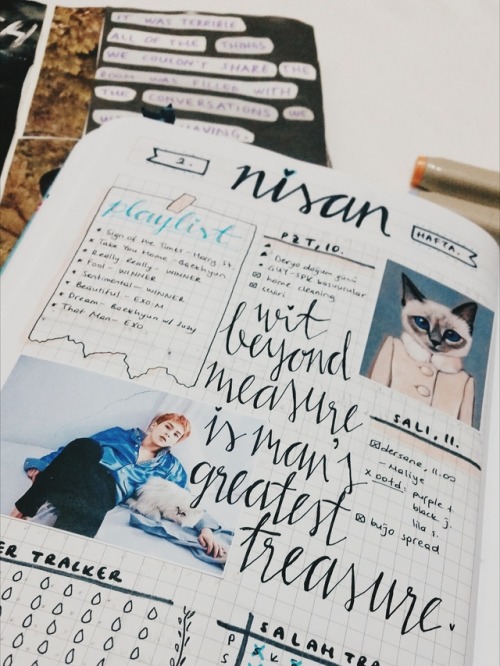 IT WAS TERRIBLE
ALL OF THE THINGS
WE COULDN'T SHARE THE
ROOM WAS FILLED WITH
THE CONVERSATIONS WE
HAVING.
2.
nisan
HAFTA.
playlist
Sign of the Times - Harry St
Take You Home - Baekhyun
Really Really - WINNER
Fool - WINNER
Sentimental - WINNER
Beautiful - EXO
Dream - Baekhyun w/ Suzy
That Man - EXO
PZT, 10.
Derya doğum günü
başvurular
home cleaning
wit
beyond
measure
is man's
greatest
treasure.
SALI, 11.
dersane, 11.00
- Maliye
x ootd: purple t.
black j.
lila s.
bujo spread
ER TRACKER
SALAH TR
P
S
K